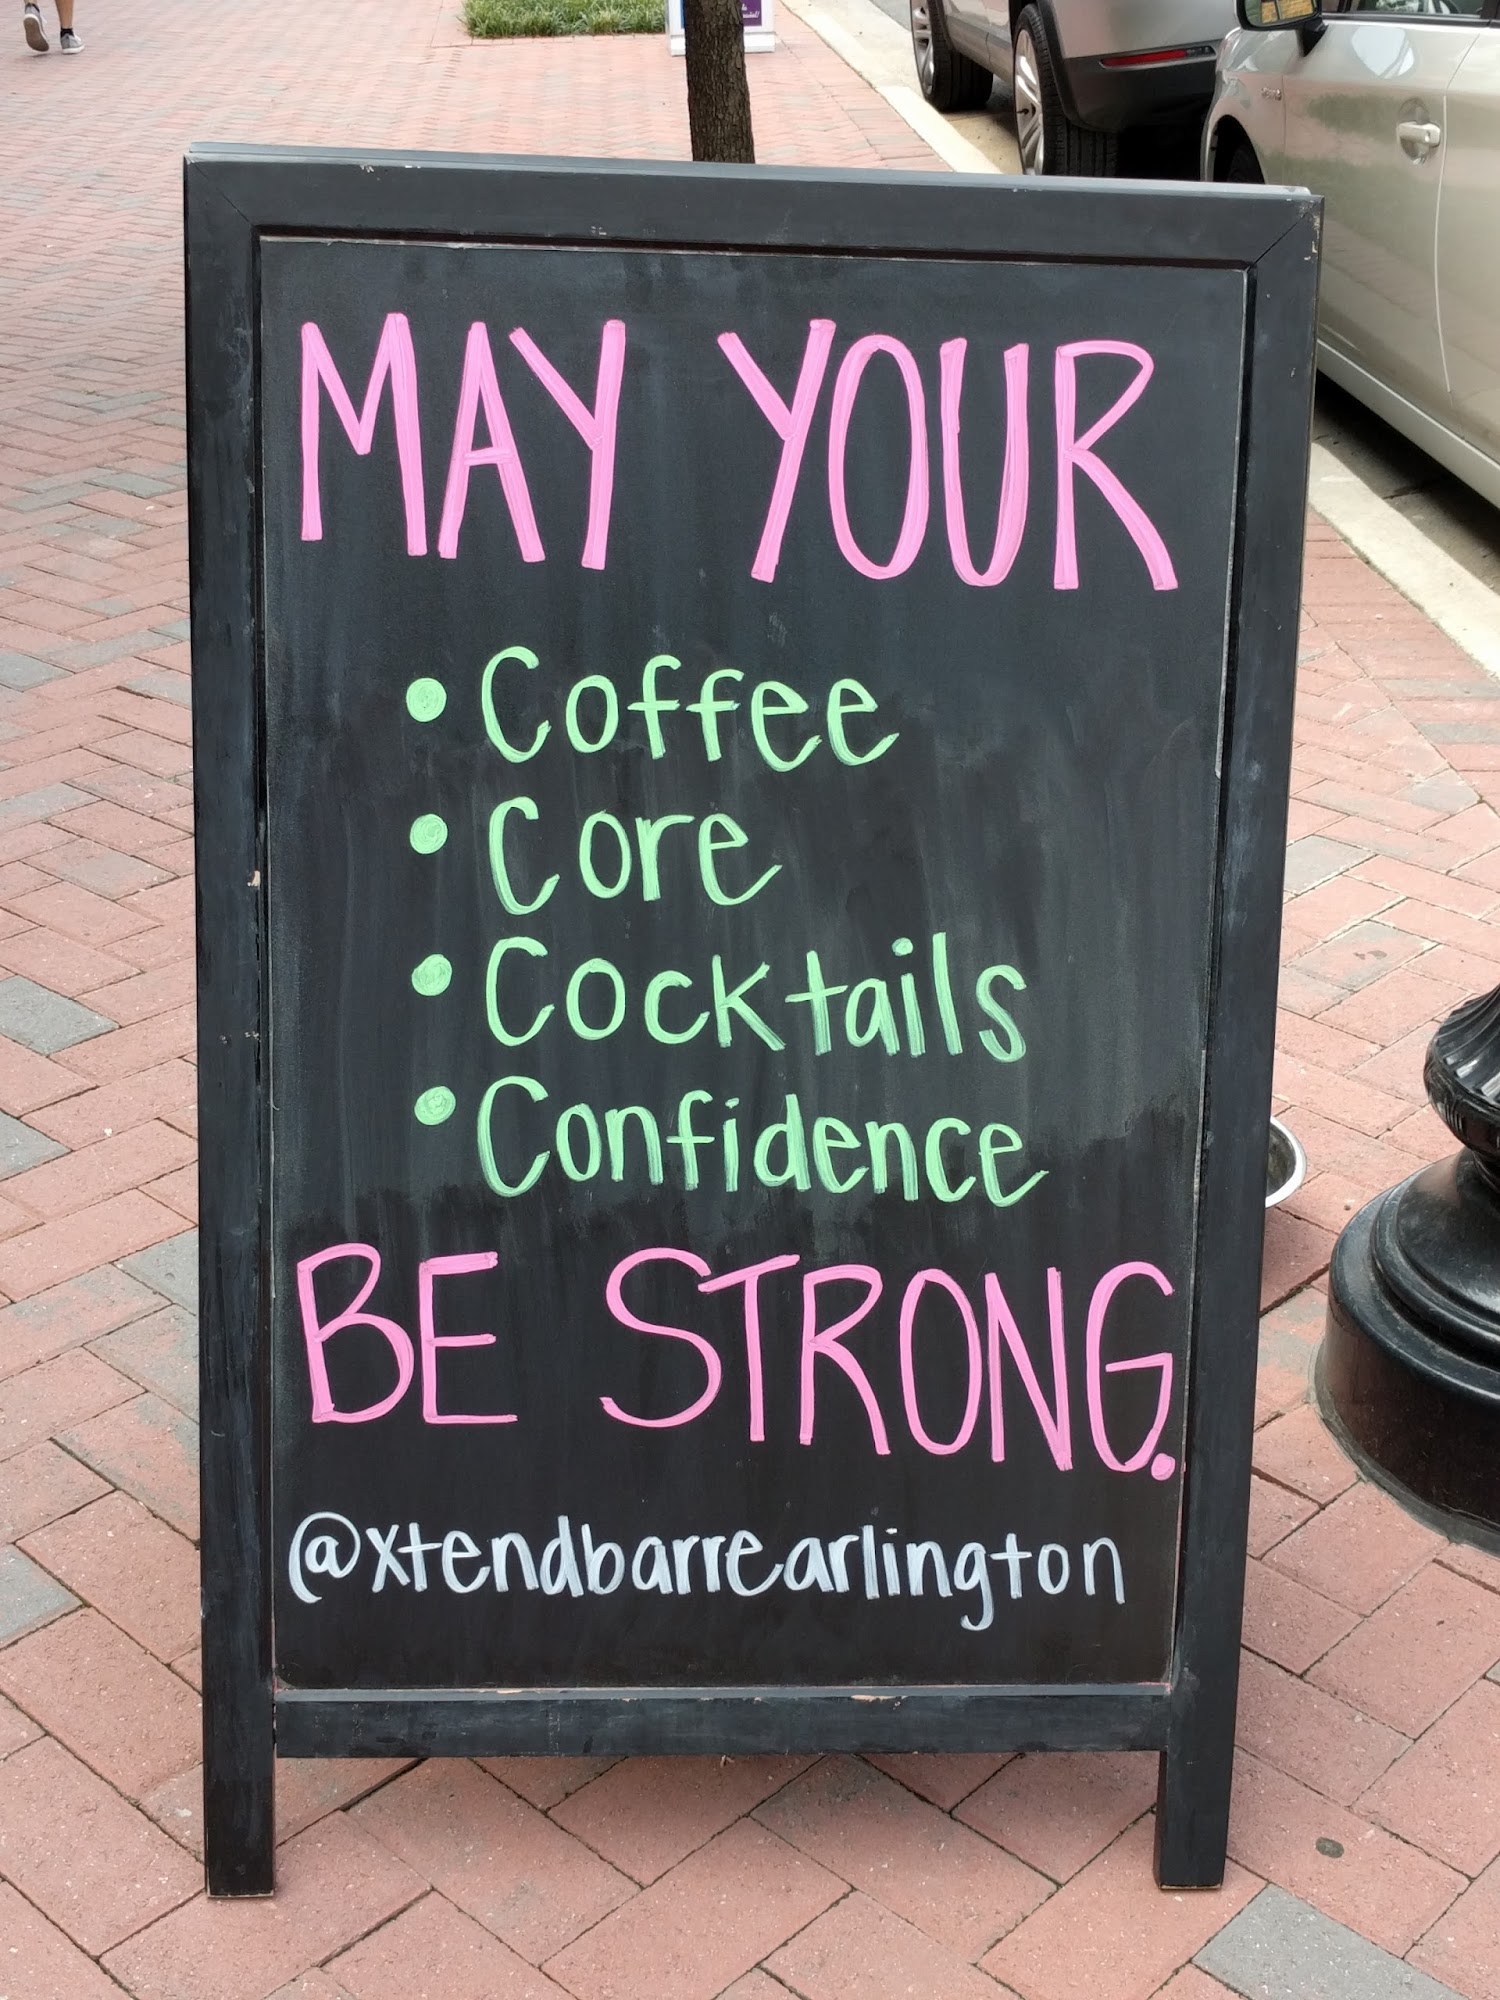 MAY YOUR
• Coffee
• Core
• Cocktails
• Confidence
BE STRONG.
@xtendbarrearlington